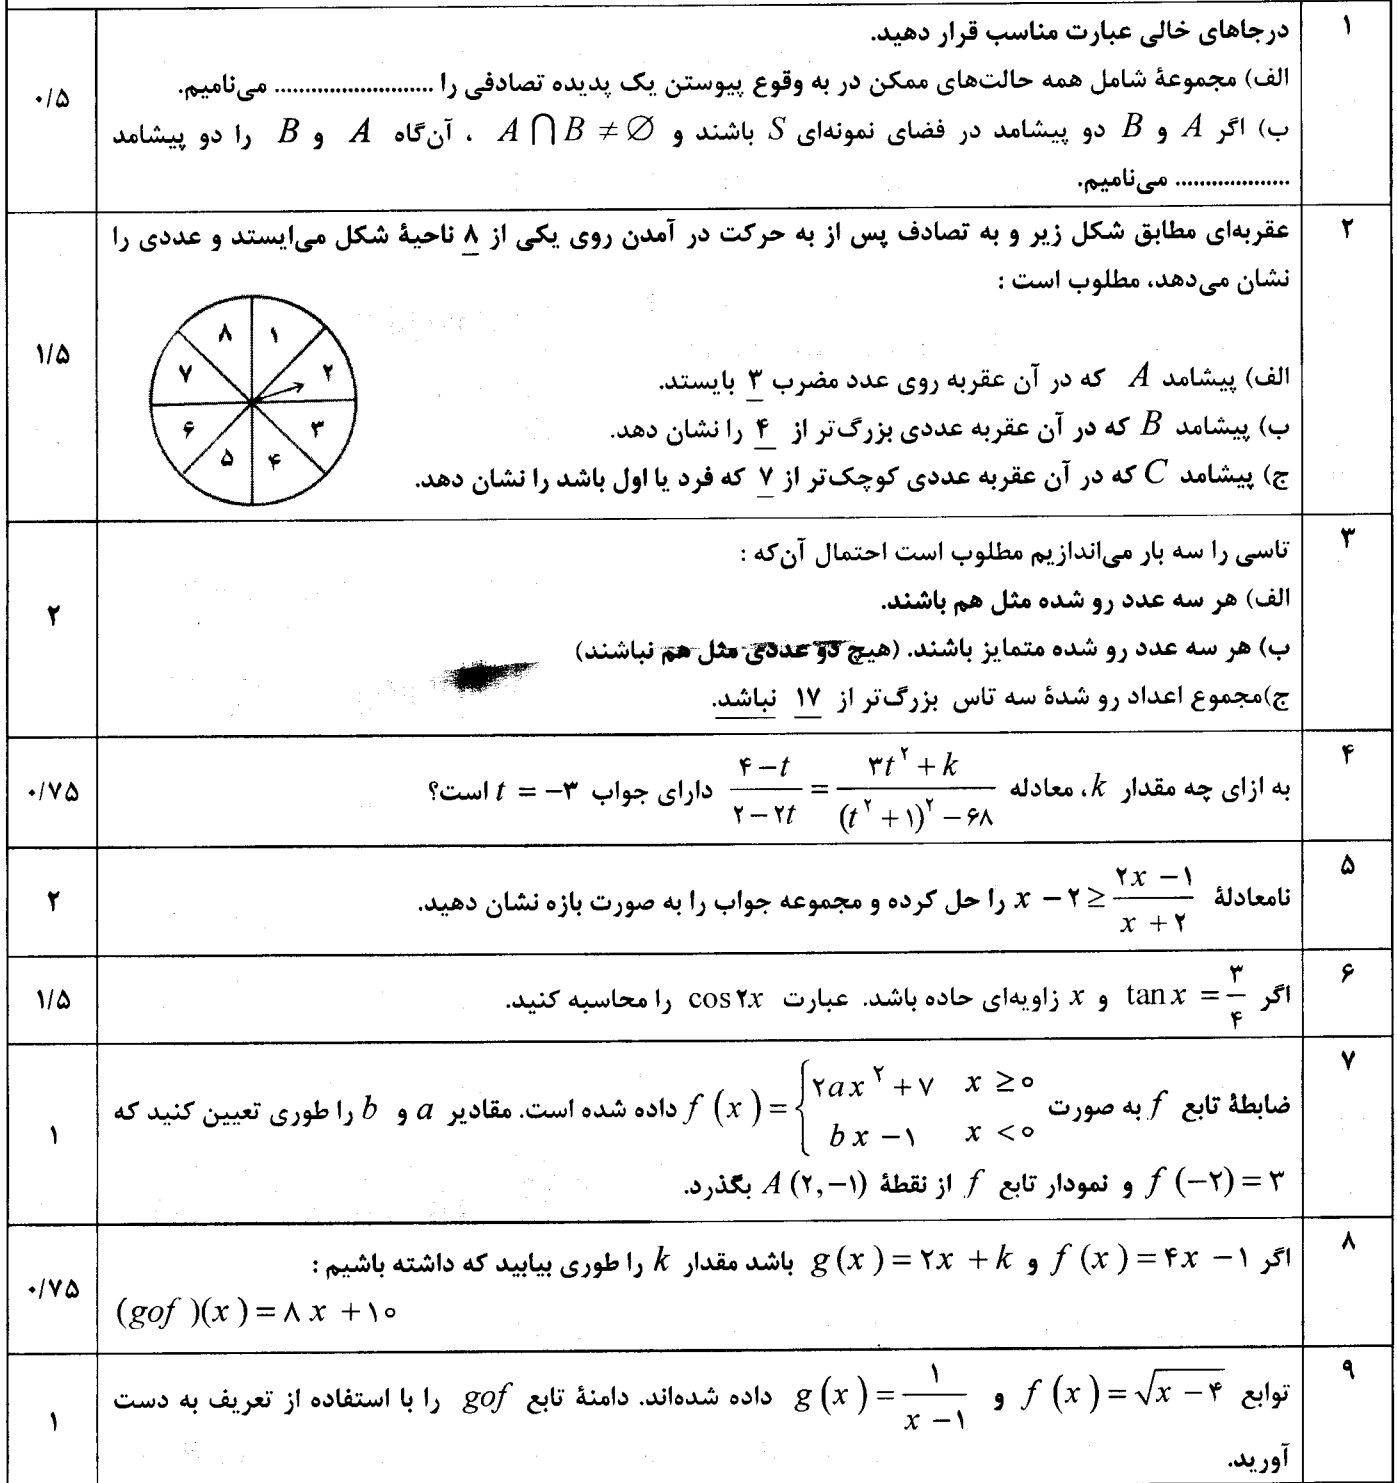 ۱
درجاهای خالی عبارت مناسب قرار دهید.
الف) مجموعهٔ شامل همه حالت‌های ممکن در به وقوع پیوستن یک پدیده تصادفی را .......................... می‌نامیم.
ب) اگر A و B دو پیشامد در فضای نمونه‌ای S باشند و A ⋂ B ≠ ∅ ، آن‌گاه A و B را دو پیشامد
................... می‌نامیم.
۰/۵
۲
عقربه‌ای مطابق شکل زیر و به تصادف پس از به حرکت در آمدن روی یکی از ۸ ناحیهٔ شکل می‌ایستد و عددی را
نشان می‌دهد، مطلوب است :
الف) پیشامد A که در آن عقربه روی عدد مضرب ۳ بایستد.
ب) پیشامد B که در آن عقربه عددی بزرگ‌تر از ۴ را نشان دهد.
ج) پیشامد C که در آن عقربه عددی کوچک‌تر از ۷ که فرد یا اول باشد را نشان دهد.
۸ ۱
۷ ۲
۶ ۳
۵ ۴
۱/۵
۳
تاسی را سه بار می‌اندازیم مطلوب است احتمال آن‌که :
الف) هر سه عدد رو شده مثل هم باشند.
ب) هر سه عدد رو شده متمایز باشند. (هیچ دو عددی مثل هم نباشند)
ج)مجموع اعداد رو شدهٔ سه تاس بزرگ‌تر از ۱۷ نباشد.
۲
۴
به ازای چه مقدار k، معادله (۴−t)/(۲−۲t) = (۳t^۲+k)/((t^۲+۱)^۲−۶۸) دارای جواب t = −۳ است؟
۰/۷۵
۵
نامعادلهٔ x − ۲ ≥ (۲x − ۱)/(x + ۲) را حل کرده و مجموعه جواب را به صورت بازه نشان دهید.
۲
۶
اگر tan x = ۳/۴ و x زاویه‌ای حاده باشد. عبارت cos ۲x را محاسبه کنید.
۱/۵
۷
ضابطهٔ تابع f به صورت f(x) = { ۲ax^۲ + ۷ x ≥ ۰ ; bx − ۱ x < ۰ داده شده است. مقادیر a و b را طوری تعیین کنید که
f(−۲) = ۳ و نمودار تابع f از نقطهٔ A(۲,−۱) بگذرد.
۱
۸
اگر f(x) = ۴x − ۱ و g(x) = ۲x + k باشد مقدار k را طوری بیابید که داشته باشیم :
(gof)(x) = ۸x + ۱۰
۰/۷۵
۹
توابع f(x) = √(x − ۴) و g(x) = ۱/(x − ۱) داده شده‌اند. دامنهٔ تابع gof را با استفاده از تعریف به دست
آورید.
۱